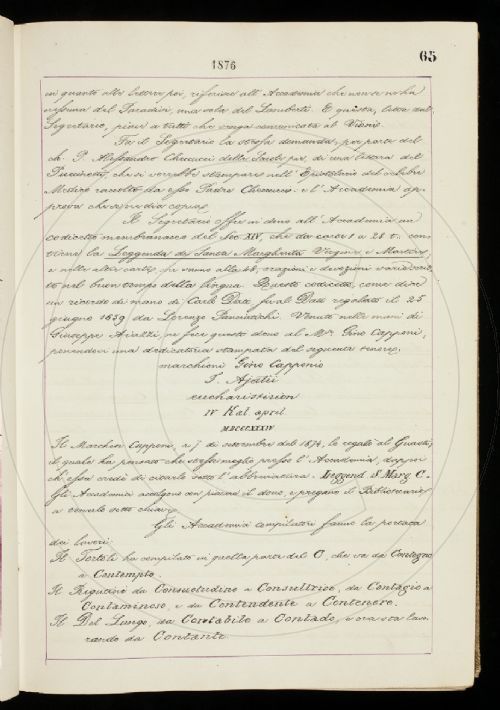 65
1876
in quanto alle lettere poi, riferisce all'Accademia che non se ne ha
nessuna del Paradisi, una sola del Lamberti. E questa, letta dal
Segretario, piace a tutti che venga comunicata al
Fa il Segretario la stessa domanda, per parte del
ch. P. Alessandro Checcucci delle Scuole pie, di una lettera del
Puccinotti, che si vorrebbe stampare nell'Epistolario del celebre
Medico raccolto da esso Padre Checcucci: e l'Accademia ap-
prova che se ne dia copia.
Il Segretario offre in dono all'Accademia un
codicetto membranaceo del Sec. XIV, che da carte 1 a 28 t. con-
tiene la Leggenda di Santa Margherita Vergine e Martire,
e nelle altre carte, fino alla 48, orazioni e devozioni
nel buon tempo della lingua. Questo codicetto, come dice
un ricordo di mano di Carlo Dati, fu al Dati regalato il 25
giugno 1659 da Lorenzo Panciatichi. Venuto nelle mani di
Giuseppe Aiazzi, ne fece questo dono al M.se Gino Capponi,
ponendovi una dedicatoria stampata del seguente tenore:
marchioni Gino Capponio
I. Ajatii
eucharisticon
IV Kal. april
MDCCCXXXIV
Il Marchese Capponi, a 7 di settembre del 1874, lo regalò al Guasti;
il quale ha pensato che stesse meglio presso l'Accademia, dopo
ch'esso credè di citarlo sotto l'abbreviatura: Leggend. S. Marg. C.
Gli Accademici accolgono con piacere il dono, e pregano il Bibliotecario
a tenerlo sotto chiave.
Gli Accademici compilatori fanno la portata
dei lavori:
Il Tortoli ha compilato in quella parte del C, che va da Contegno
a Contempto.
Il Rigutini da Consuetudine a Consultrice, da Contagio a
Contaminoso, e da Contendente a Contenere.
Il Del Lungo, da Contabile a Contado, e ora sta lavo-
rando da Contante.